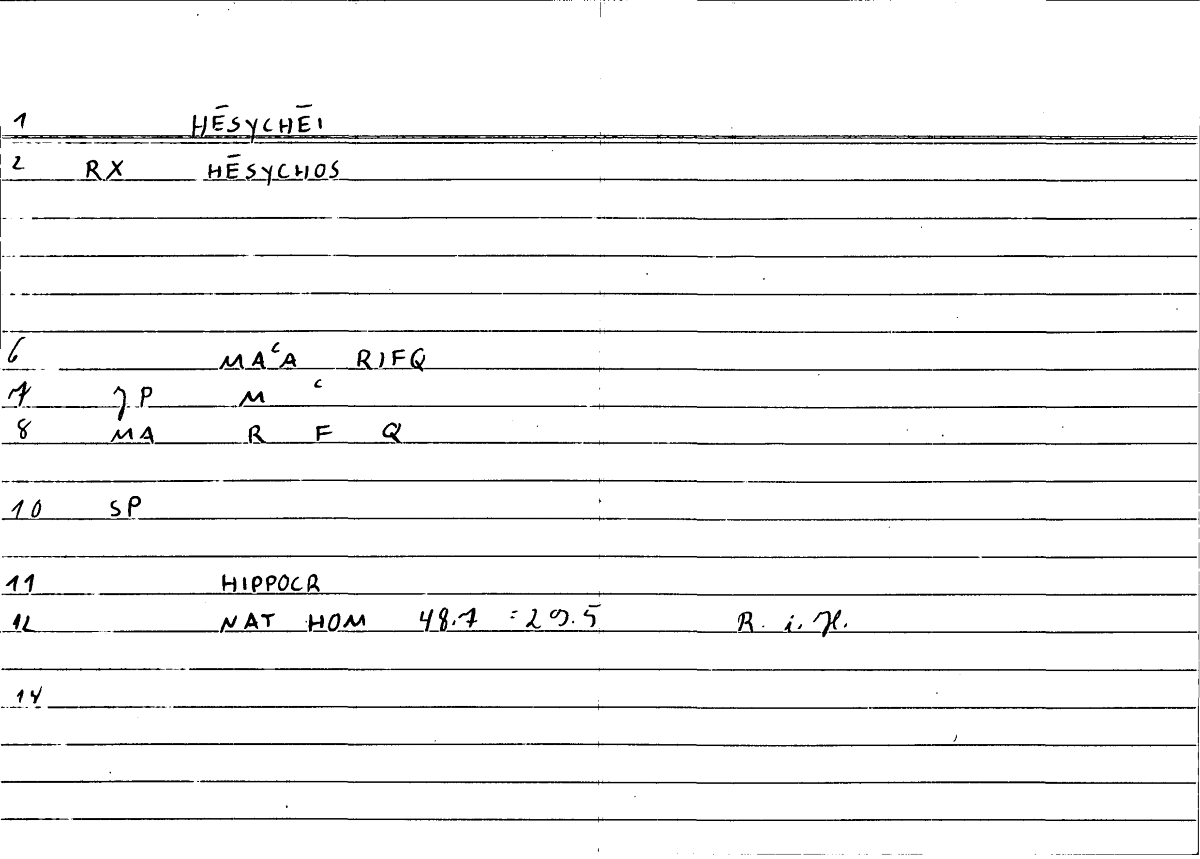 1 HĒSYCHĒI
2 RX HĒSYCHOS
6 MAᶜA RIFQ
7 P M ᶜ
8 MA R F Q
10 SP
11 HIPPOCR
12 NAT HOM 48.7 = 20.5 R. i. H.
14